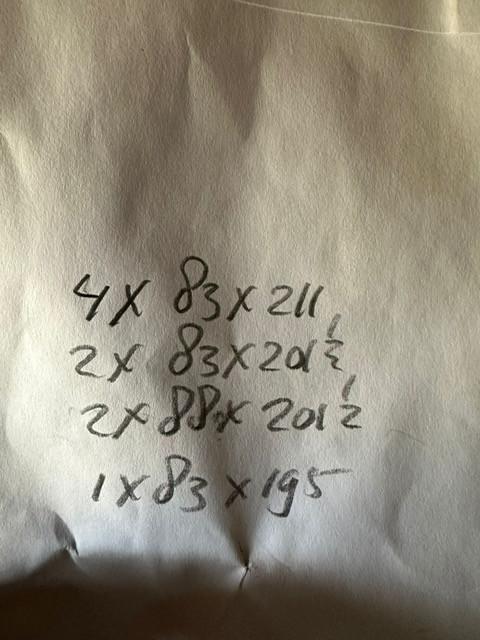 4x 83x211
2x 83x201½
2x88x201½
1x83x195